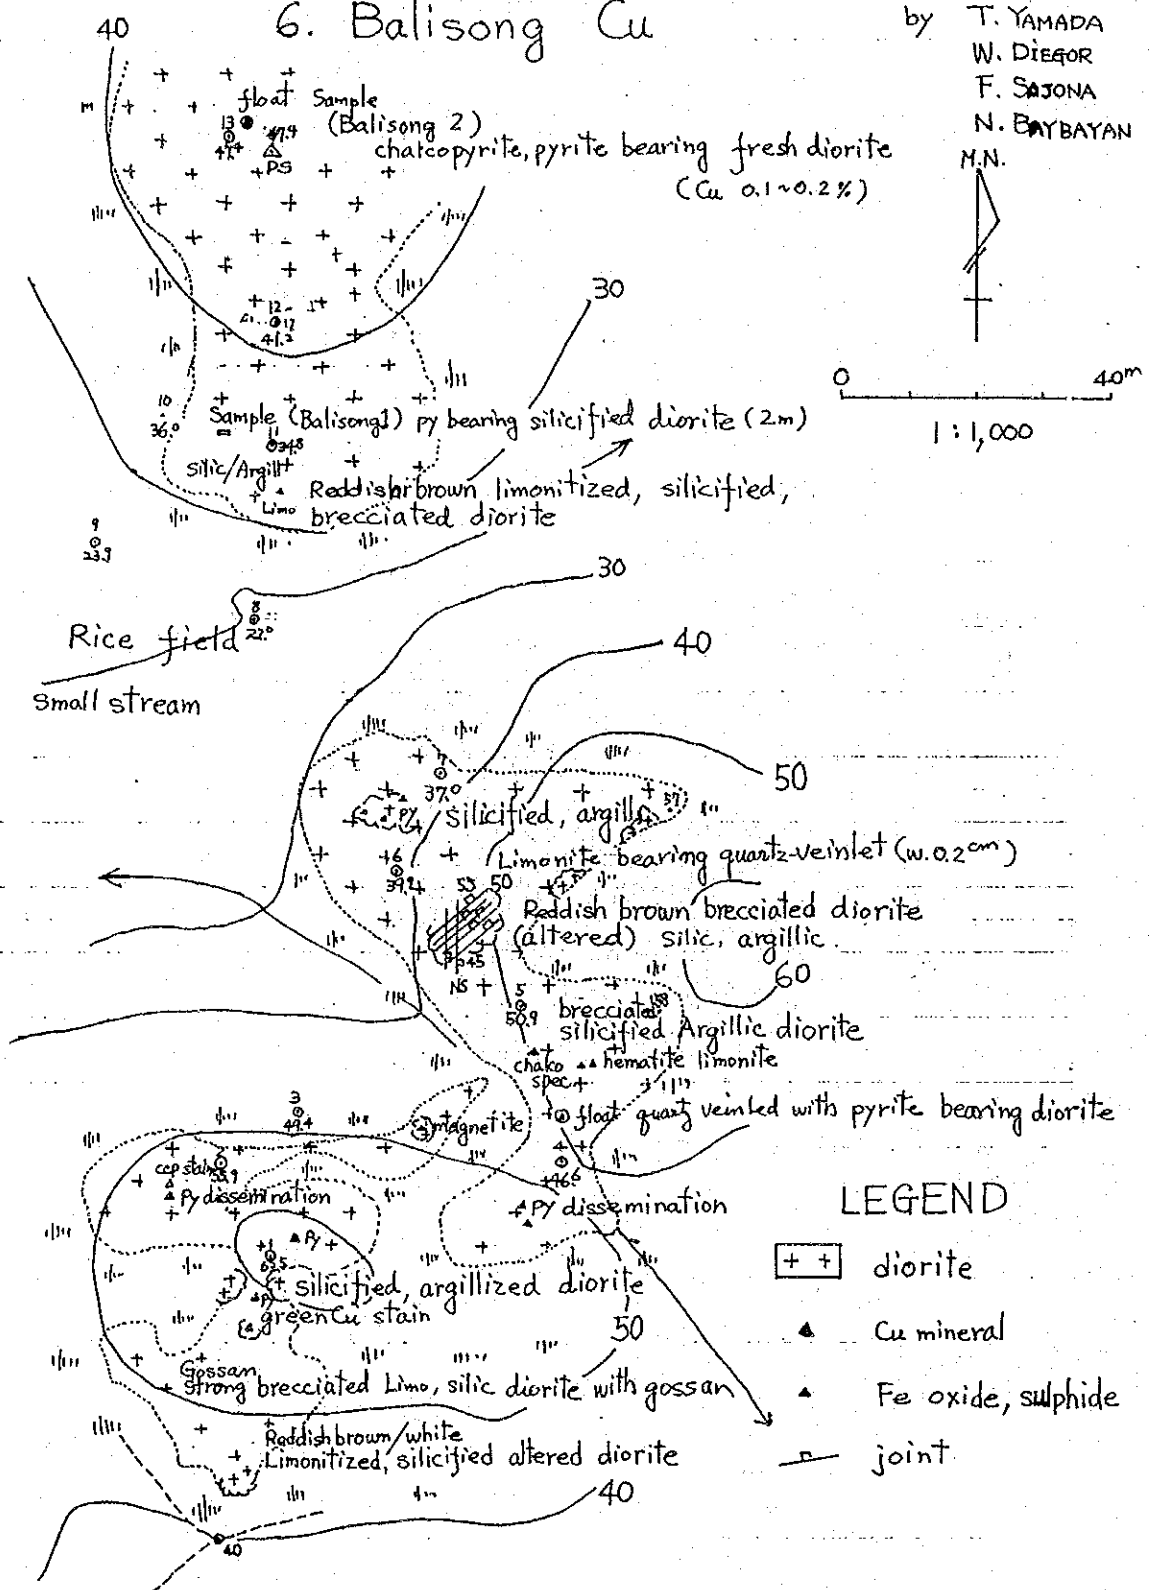 6. Balisong Cu
by T. YAMADA
W. DIEGOR
F. SAJONA
N. BAYBAYAN
M.N.
40
float Sample
(Balisong 2)
13
47.9
PS
chalcopyrite, pyrite bearing fresh diorite
(Cu 0.1~0.2%)
30
0 40m
1 : 1,000
12
41.2
10
36.0
Sample (Balisong1) py bearing silicified diorite (2m)
11
34.8
Silic/Argill
Limo
Reddish brown limonitized, silicified,
brecciated diorite
9
23.9
30
8
22.0
Rice field
Small stream
40
50
7
37.0
Py
silicified, argill
57
Limonite bearing quartz-veinlet (w. 0.2cm)
6
39.2
55
50
Reddish brown brecciated diorite
(altered) silic, argillic
45
60
NS
5
50.9
brecciated
silicified Argillic diorite
chako
spec
hematite limonite
3
49.4
magnetite
float quartz veinled with pyrite bearing diorite
4
46.6
ccp stain
Py dissemination
Py dissemination
LEGEND
Py
1
+ + diorite
silicified, argillized diorite
green Cu stain
50
Cu mineral
Gossan
Strong brecciated Limo, silic diorite with gossan
Fe oxide, sulphide
Reddish brown/white
Limonitized, silicified altered diorite
joint
40
40